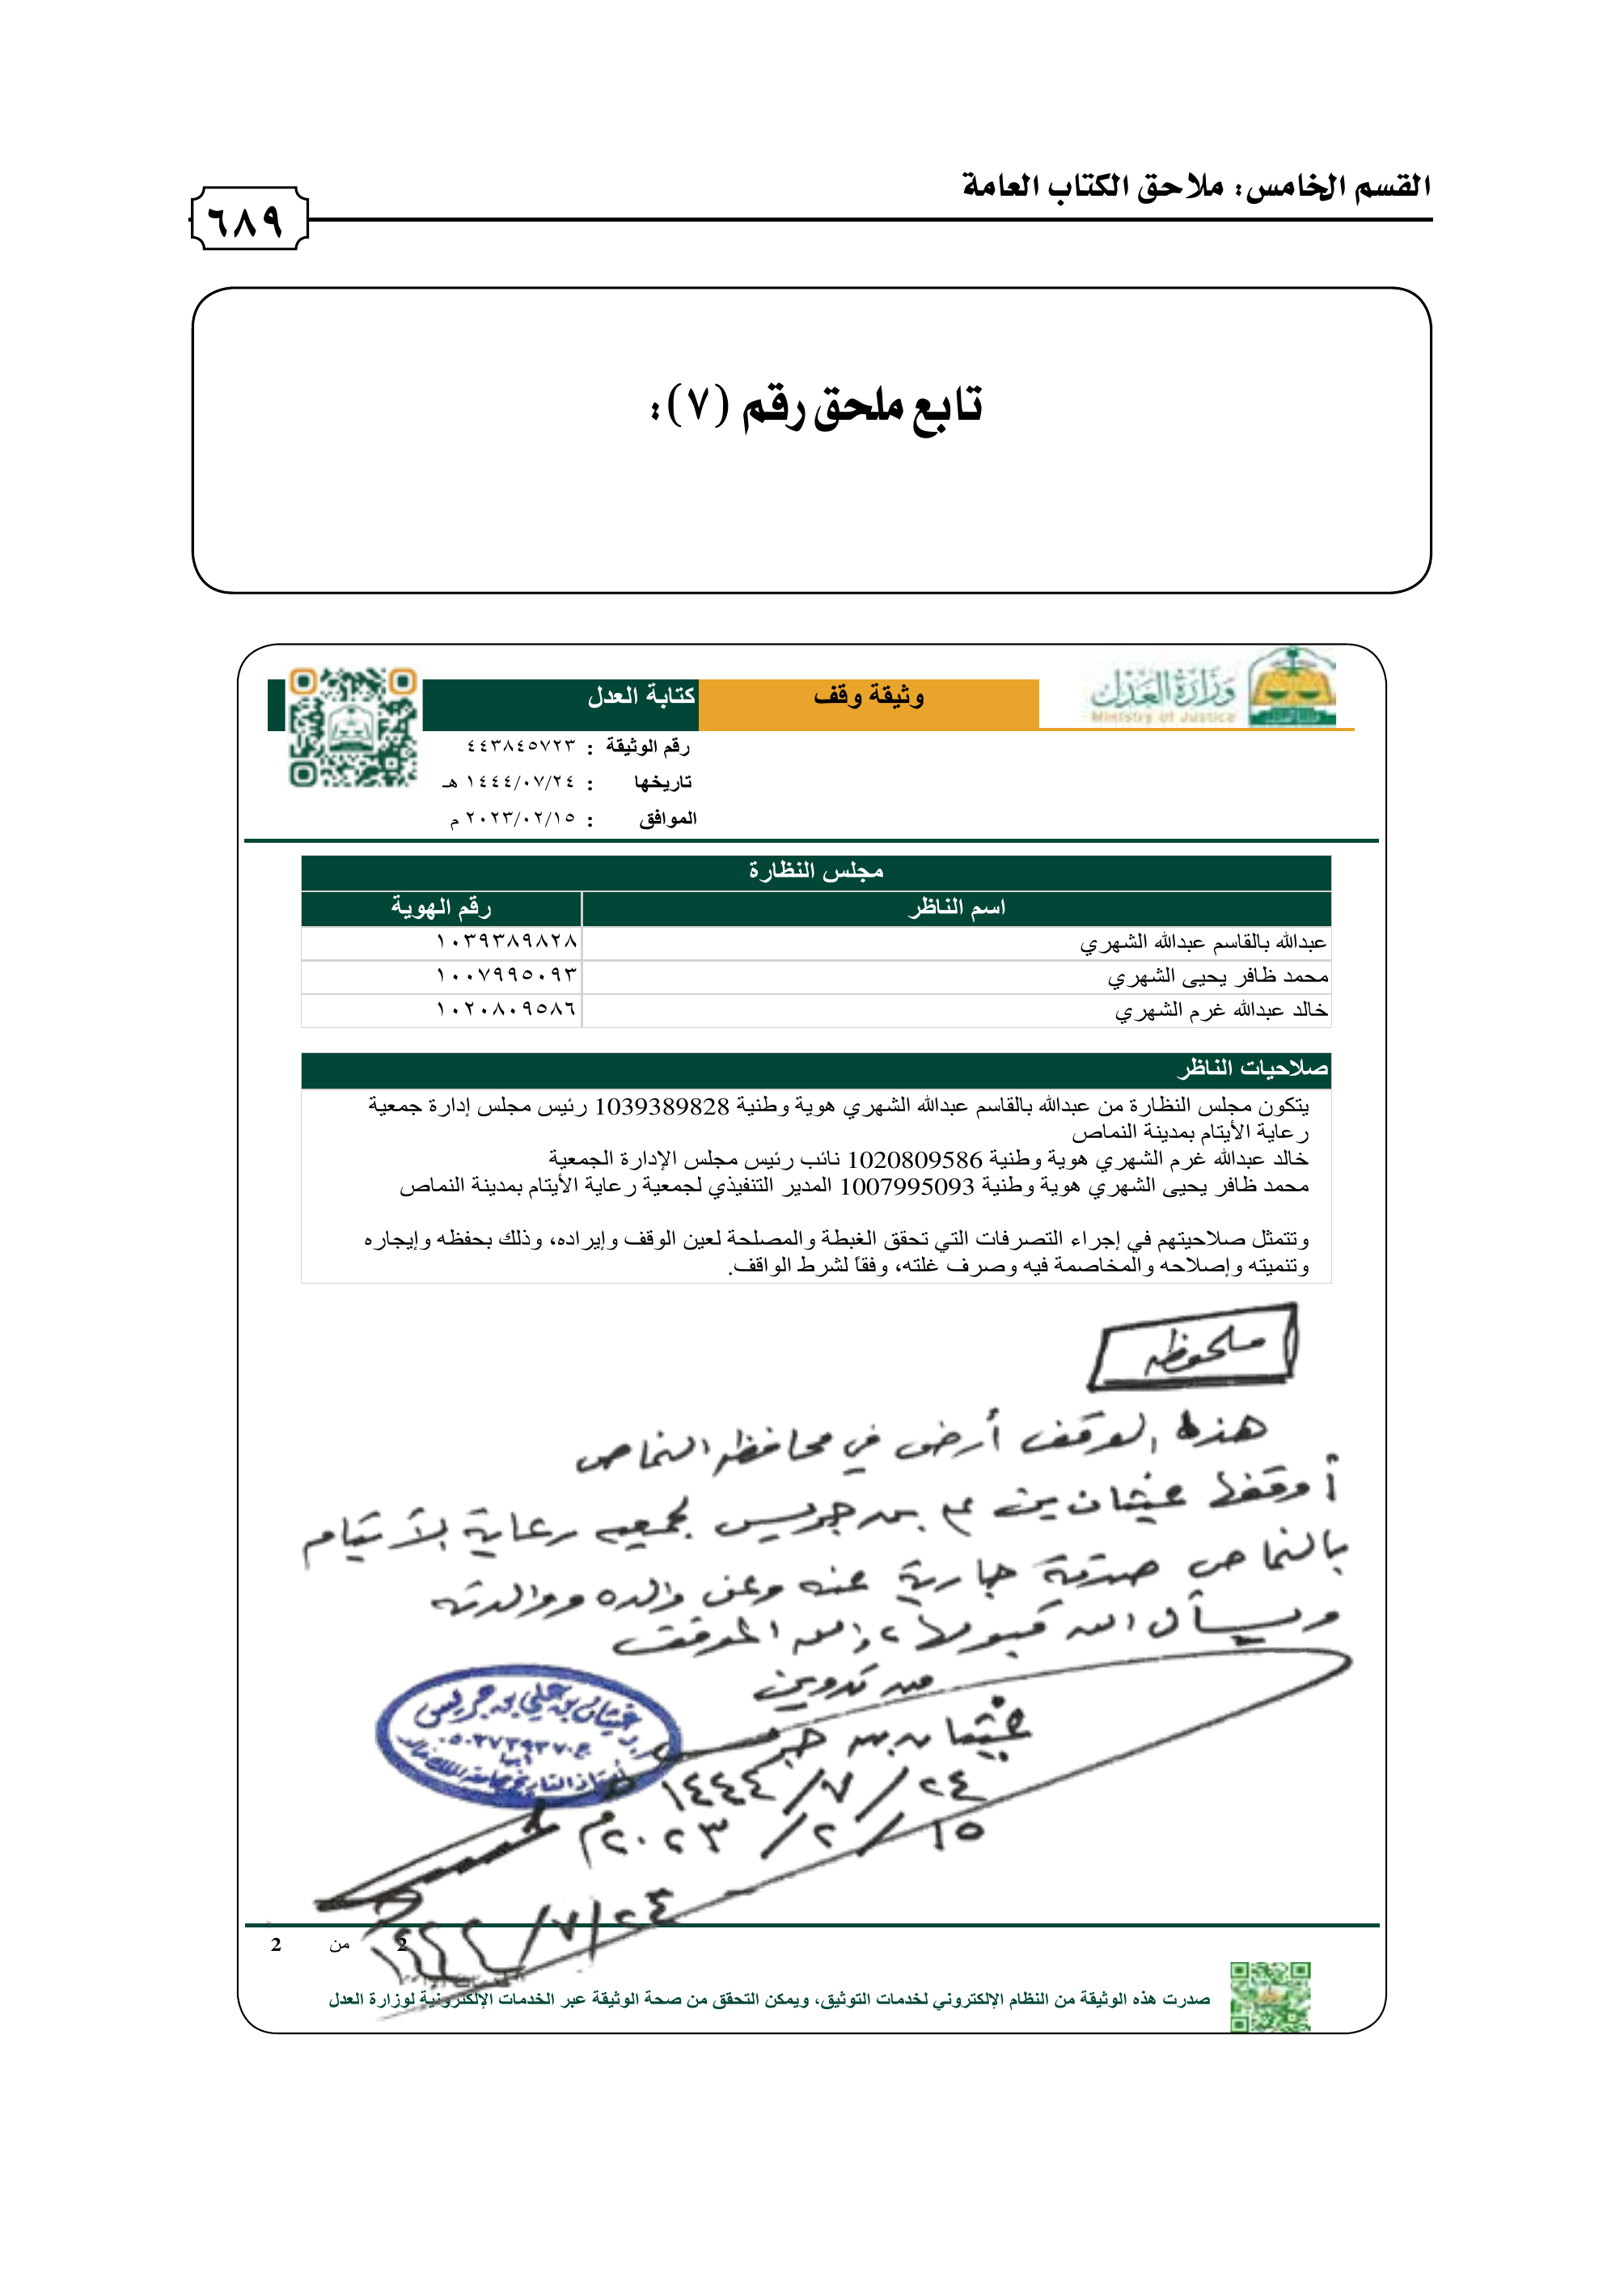 القسم الخامس: ملاحق الكتاب العامة
٦٨٩
تابع ملحق رقم (٧):
وزارة العدل
Ministry of Justice
وثيقة وقف
كتابة العدل
رقم الوثيقة : ٤٤٣٨٤٥٧٢٣
تاريخها : ١٤٤٤/٠٧/٢٤ هـ
الموافق : ٢٠٢٣/٠٢/١٥ م
مجلس النظارة
اسم الناظر رقم الهوية
عبدالله بالقاسم عبدالله الشهري ١٠٣٩٣٨٩٨٢٨
محمد ظافر يحيى الشهري ١٠٠٧٩٩٥٠٩٣
خالد عبدالله غرم الشهري ١٠٢٠٨٠٩٥٨٦
صلاحيات الناظر
يتكون مجلس النظارة من عبدالله بالقاسم عبدالله الشهري هوية وطنية 1039389828 رئيس مجلس إدارة جمعية
رعاية الأيتام بمدينة النماص
خالد عبدالله غرم الشهري هوية وطنية 1020809586 نائب رئيس مجلس الإدارة الجمعية
محمد ظافر يحيى الشهري هوية وطنية 1007995093 المدير التنفيذي لجمعية رعاية الأيتام بمدينة النماص
وتتمثل صلاحيتهم في إجراء التصرفات التي تحقق الغبطة والمصلحة لعين الوقف وإيراده، وذلك بحفظه وإيجاره
وتنميته وإصلاحه والمخاصمة فيه وصرف غلته، وفقاً لشرط الواقف.
ملحوظه
هذه الوقف أرض في محافظة النماص
أوقفها غيثان بن علي بن جريس لجمعيه رعاية الأيتام
بالنماص صدقة جارية عنه وعن والده ووالدته
ويسأل الله قبولها، والله الموفق
من تدوين
غيثان بن جريس
٢٤ / ٧ / ١٤٤٤
١٥ / ٢ / ٢٠٢٣م
غيثان بن علي بن جريس
أبها
أستاذ التاريخ بجامعة الملك خالد
٢٤/٧/١٤٤٤
2 من 2
صدرت هذه الوثيقة من النظام الإلكتروني لخدمات التوثيق، ويمكن التحقق من صحة الوثيقة عبر الخدمات الإلكترونية لوزارة العدل